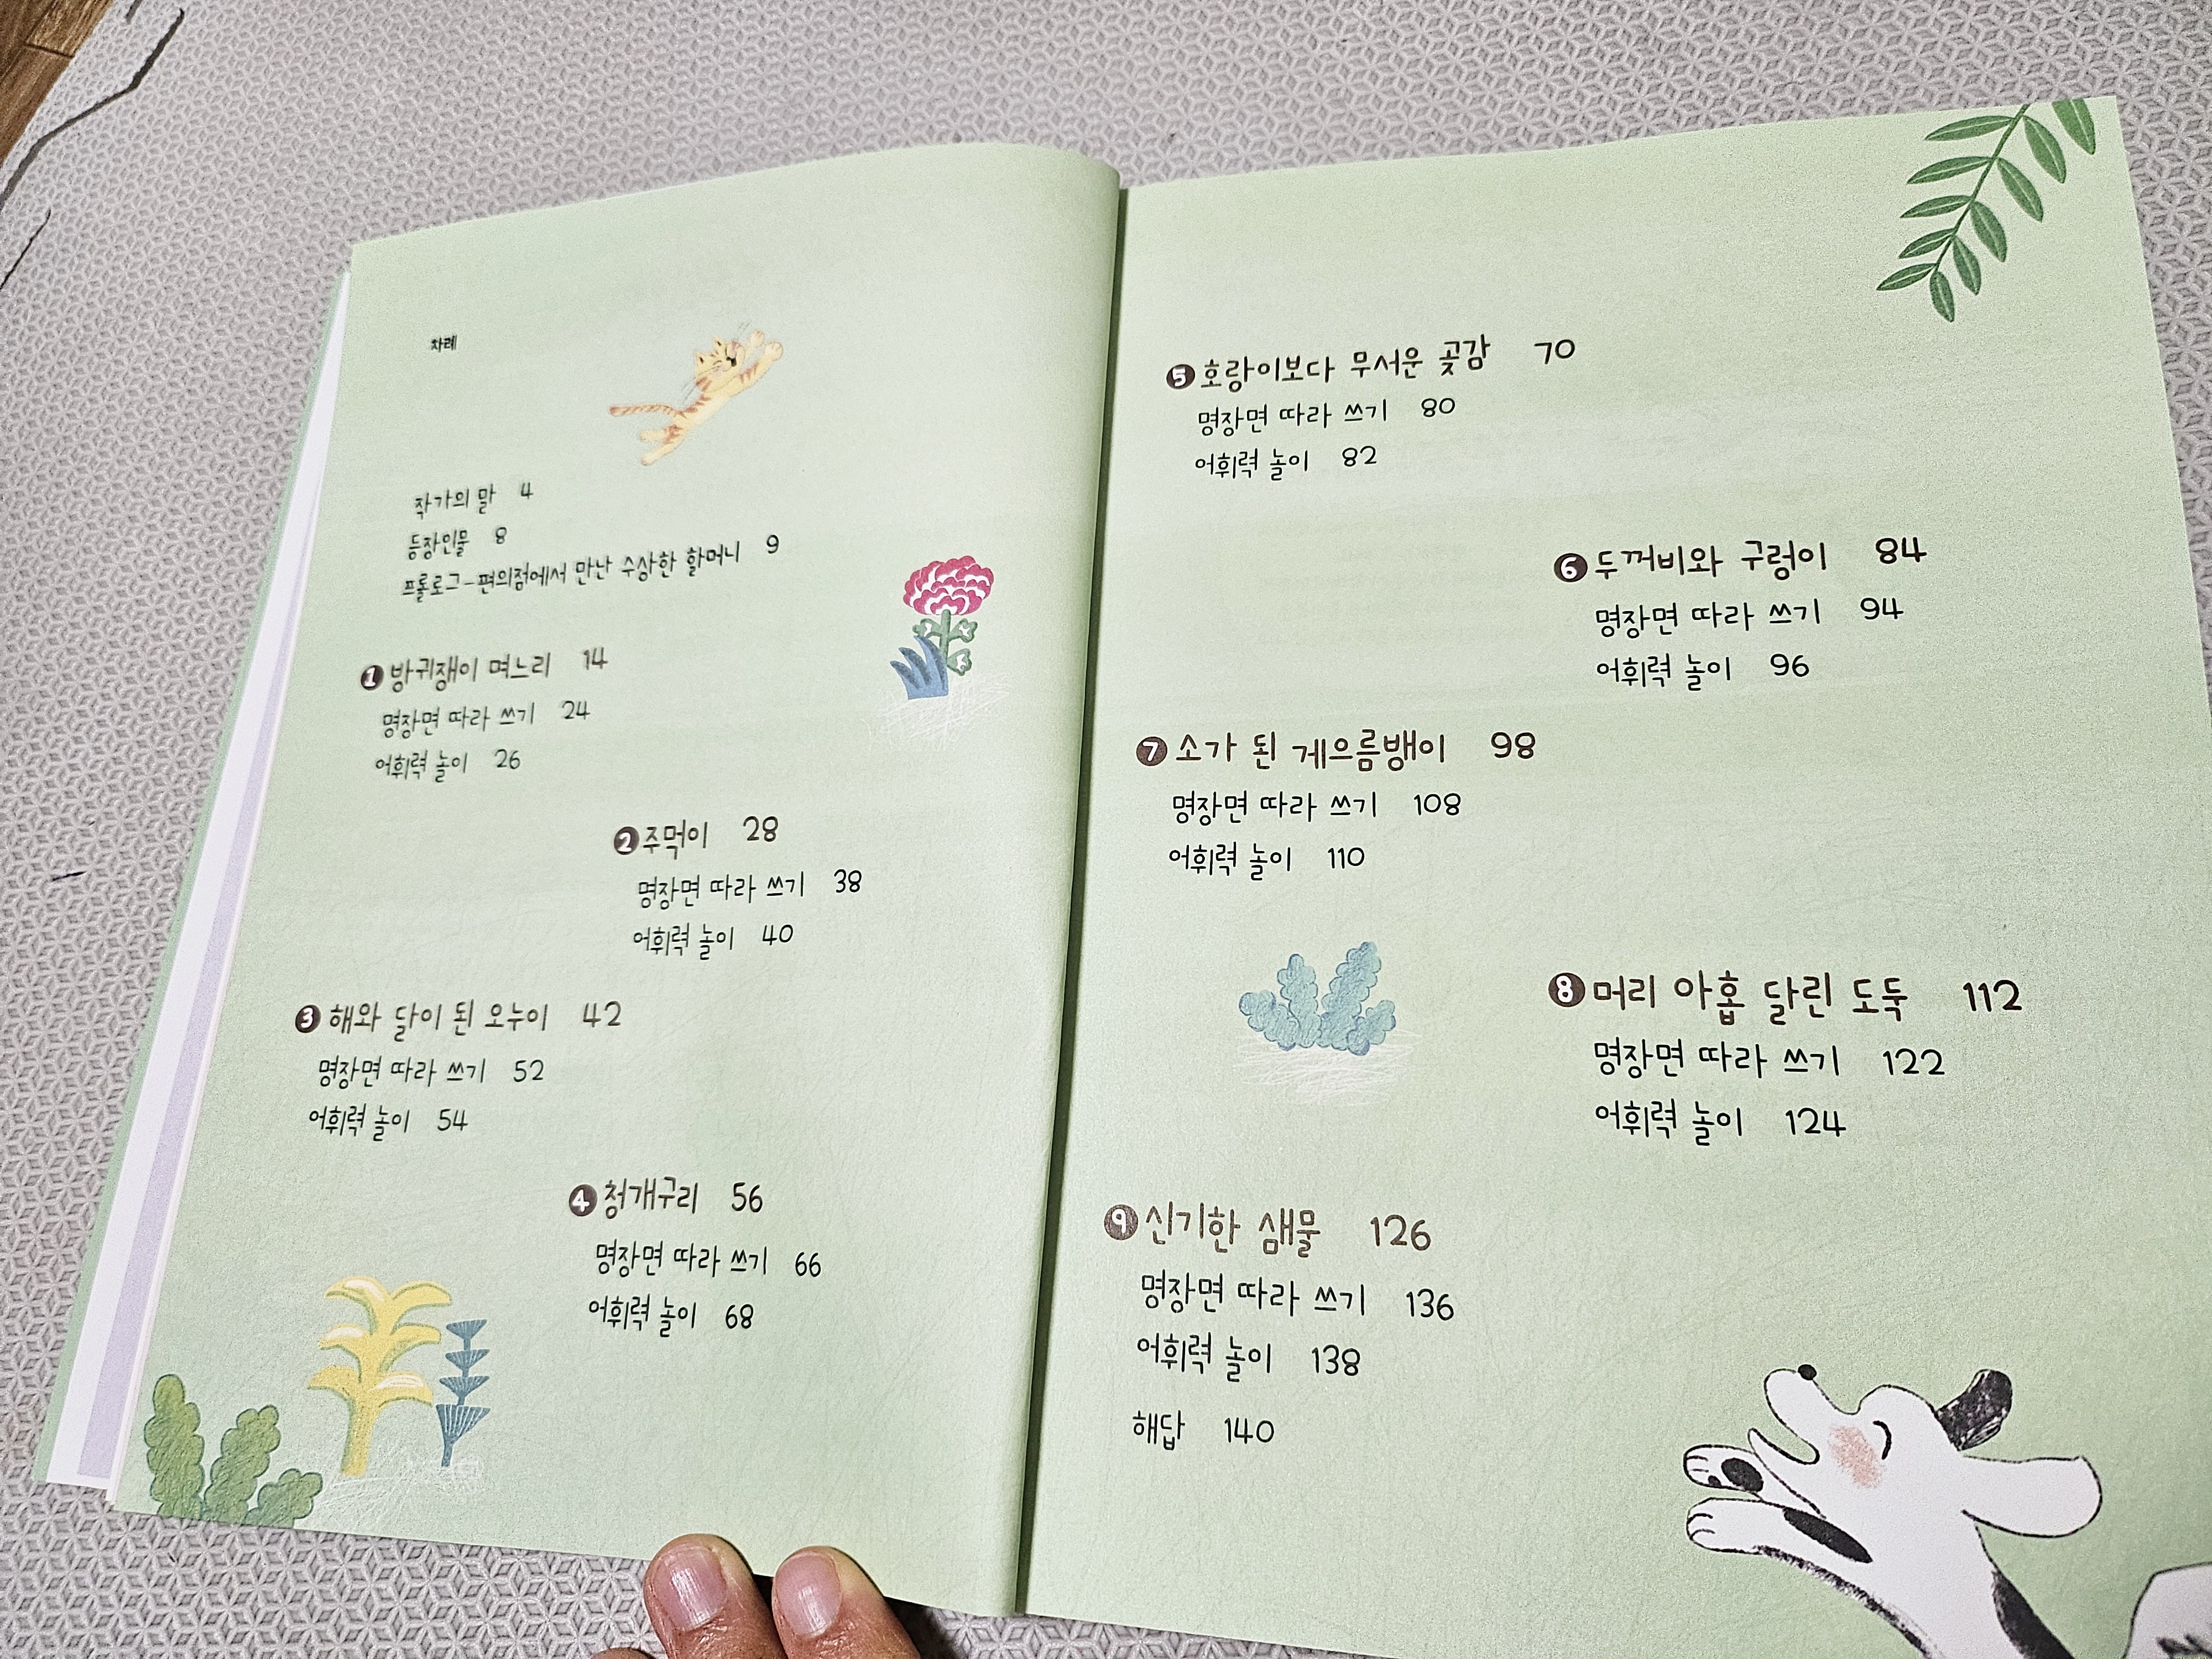 차례
작가의 말 4
등장인물 8
프롤로그-편의점에서 만난 수상한 할머니 9
1 방귀쟁이 며느리 14
명장면 따라 쓰기 24
어휘력 놀이 26
2 주먹이 28
명장면 따라 쓰기 38
어휘력 놀이 40
3 해와 달이 된 오누이 42
명장면 따라 쓰기 52
어휘력 놀이 54
4 청개구리 56
명장면 따라 쓰기 66
어휘력 놀이 68
5 호랑이보다 무서운 곶감 70
명장면 따라 쓰기 80
어휘력 놀이 82
6 두꺼비와 구렁이 84
명장면 따라 쓰기 94
어휘력 놀이 96
7 소가 된 게으름뱅이 98
명장면 따라 쓰기 108
어휘력 놀이 110
8 머리 아홉 달린 도둑 112
명장면 따라 쓰기 122
어휘력 놀이 124
9 신기한 샘물 126
명장면 따라 쓰기 136
어휘력 놀이 138
해답 140